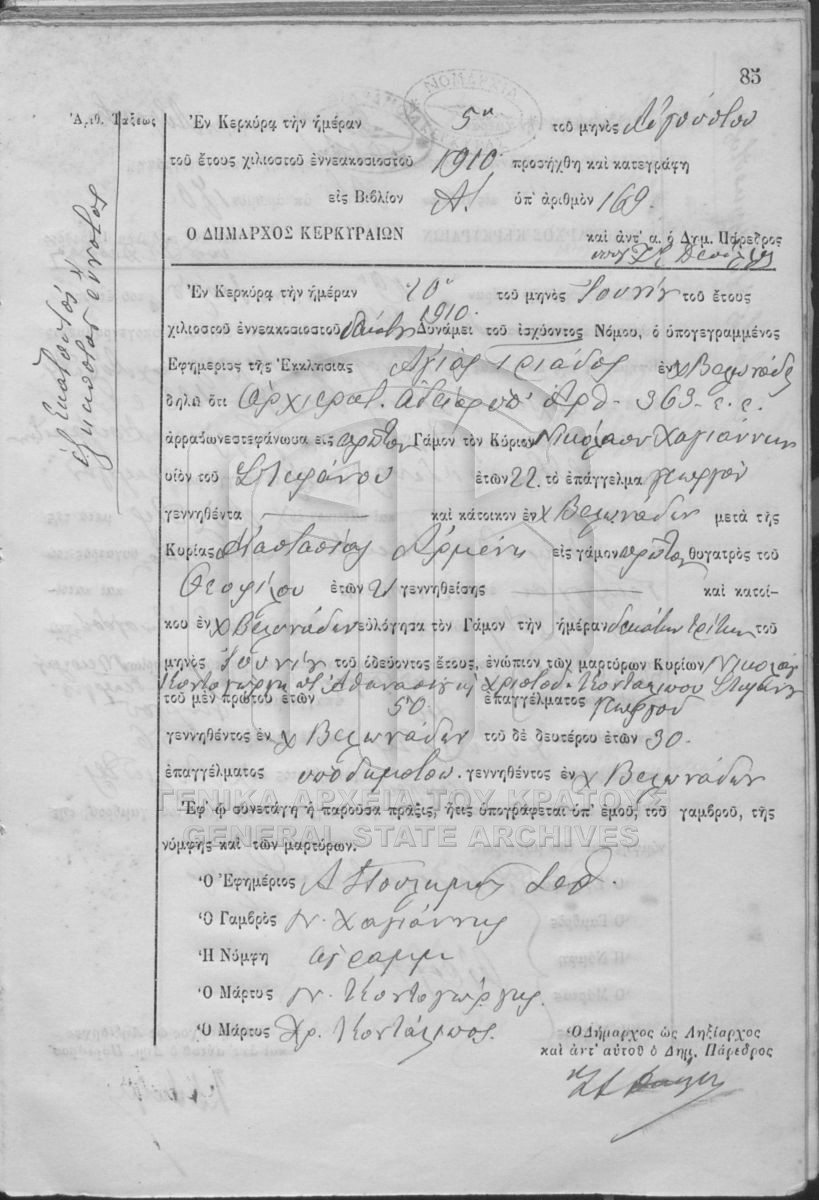 85
Ἀριθ. Τάξεως
Ἐν Κερκύρᾳ τὴν ἡμέραν 5η τοῦ μηνὸς Αὐγούστου
τοῦ ἔτους χιλιοστοῦ ἐννεακοσιοστοῦ 1910 προσήχθη καὶ κατεγράφη
εἰς Βιβλίον Α'. ὑπ' ἀριθμὸν 169.
Ο ΔΗΜΑΡΧΟΣ ΚΕΡΚΥΡΑΙΩΝ καὶ ἀντ' α. ὁ Δημ. Πάρεδρος
Ἐν Κερκύρᾳ τὴν ἡμέραν τοῦ μηνὸς Ἰουνίου τοῦ ἔτους
1910.
χιλιοστοῦ ἐννεακοσιοστοῦ δεκάτου Δυνάμει τοῦ ἰσχύοντος Νόμου, ὁ ὑπογεγραμμένος
Ἐφημέριος τῆς Ἐκκλησίας Ἁγίας Τριάδος ἐν χ Βελονάδες
δηλῶ ὅτι Ἀρχιερατ. ἀδείᾳ ὑπ' Ἀρθ- 363- ἐ. ἐ.
ἀρραβωνεστεφάνωσα εἰς πρῶτον Γάμον τὸν Κύριον Νικόλαον Χαγιάννην
υἱὸν τοῦ Στεφάνου ἐτῶν 22. τὸ ἐπάγγελμα γεωργὸν
γεννηθέντα καὶ κάτοικον ἐν χ Βελονάδων μετὰ τῆς
Κυρίας Ἀναστασίας Ἀρμένη εἰς γάμον πρῶτον θυγατρὸς τοῦ
Θεοφίλου ἐτῶν 21 γεννηθείσης καὶ κατοί-
κου ἐν χ Βελονάδων εὐλόγησα τὸν Γάμον τὴν ἡμέραν δεκάτην τρίτην τοῦ
μηνὸς Ἰουνίου τοῦ ὁδεύοντος ἔτους, ἐνώπιον τῶν μαρτύρων Κυρίων Νικολάου
Κοντογιώργη Ἀθανασίου Χριστοδ. Κονταλίπου Στεφάνου
τοῦ μὲν πρώτου ἐτῶν 50. ἐπαγγέλματος γεωργοῦ
γεννηθέντος ἐν χ Βελονάδων τοῦ δὲ δευτέρου ἐτῶν 30.
ἐπαγγέλματος ὑποδηματοπ. γεννηθέντος ἐν χ Βελονάδων
ΓΕΝΙΚΑ ΑΡΧΕΙΑ ΤΟΥ ΚΡΑΤΟΥΣ
Ἐφ' ᾧ συνετάγη ἡ παροῦσα πρᾶξις, ἥτις ὑπογράφεται ὑπ' ἐμοῦ, τοῦ γαμβροῦ, τῆς
GENERAL STATE ARCHIVES
νύμφης καὶ τῶν μαρτύρων.
Ὁ Ἐφημέριος
Ὁ Γαμβρὸς Ν. Χαγιάννης
Ἡ Νύμφη ἀγράμμ
Ὁ Μάρτυς Ν. Κοντογιώργης.
Ὁ Μάρτυς Χρ. Κοντάλιπος.
Ὁ Δήμαρχος ὡς Ληξίαρχος
καὶ ἀντ' αὐτοῦ ὁ Δημ. Πάρεδρος
ΝΟΜΑΡΧΙΑ